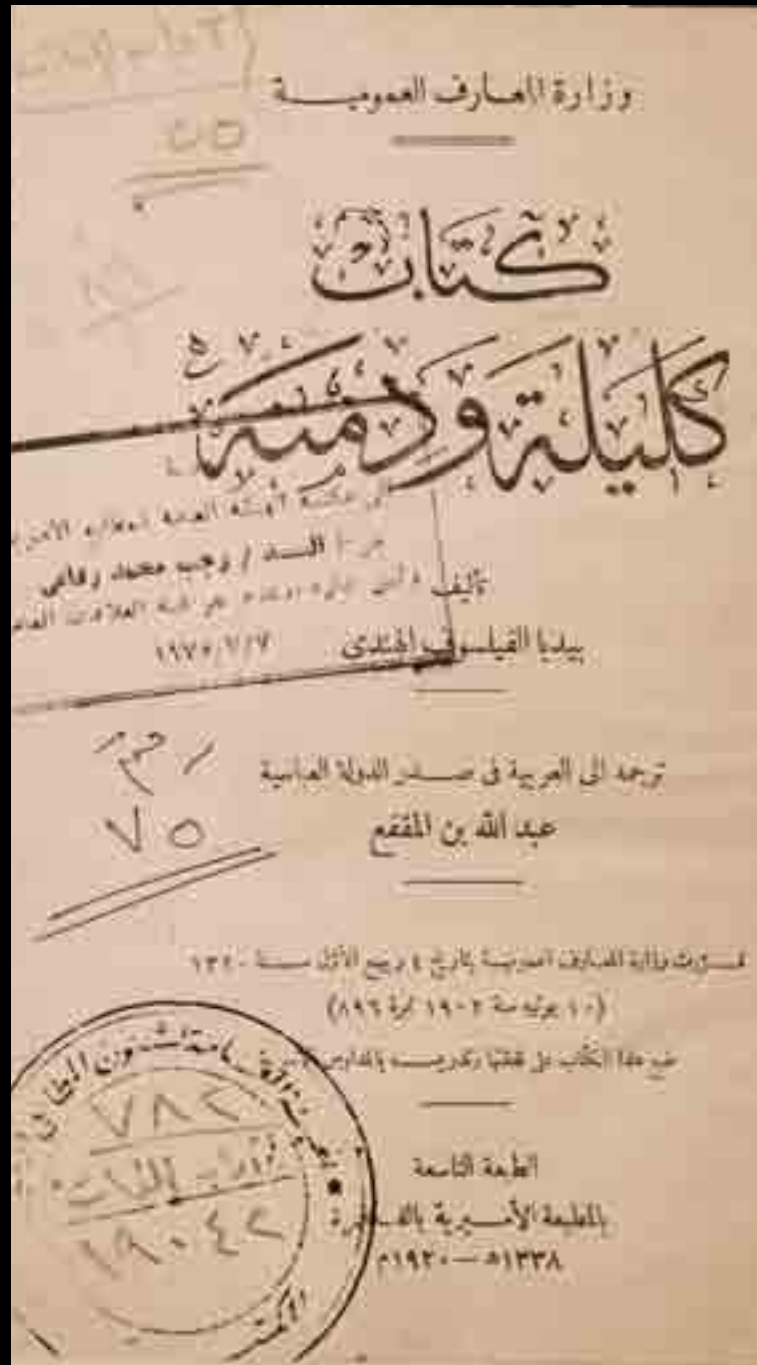 وزارة المعارف العمومية
٧٥
كتاب
كليلة ودمنة
السيد / رجب محمد رفاعى
تأليف
١٩٧٥/٧/٧
بيدبا الفيلسوف الهندى
ترجمه الى العربية فى صدر الدولة العباسية
عبد الله بن المقفع
٧٥
قررت وزارة المعارف العمومية بتاريخ ٤ ربيع الأول سنة ١٣٢٠
(١٠ يونيه سنة ١٩٠٢ نمرة ٨٩٦)
طبع هذا الكتاب على نفقتها وتدريسه بالمدارس الأميرية
الطبعة التاسعة
بالمطبعة الأميرية بالقاهرة
١٣٣٨ه—١٩٢٠م
٧٨٢
١٩٠٤٢